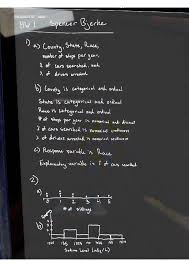 HW 1 Spencer Bjerke
1) a) County, State, Race,
number of stops per year,
% of cars searched, and
% of drivers arrested
b) County is categorical and ordinal
State is categorical and ordinal
Race is categorical and ordinal
# of stops per year is numerical and discrete
% of cars searched is numerical continuous
% of drivers arrested is numerical continuous
c) Response variable is Race
Explanatory variable is % of cars searched
2)
a)
0 1 2 3 4 5 6
# of siblings
b)
Sodium Level (mg/L)